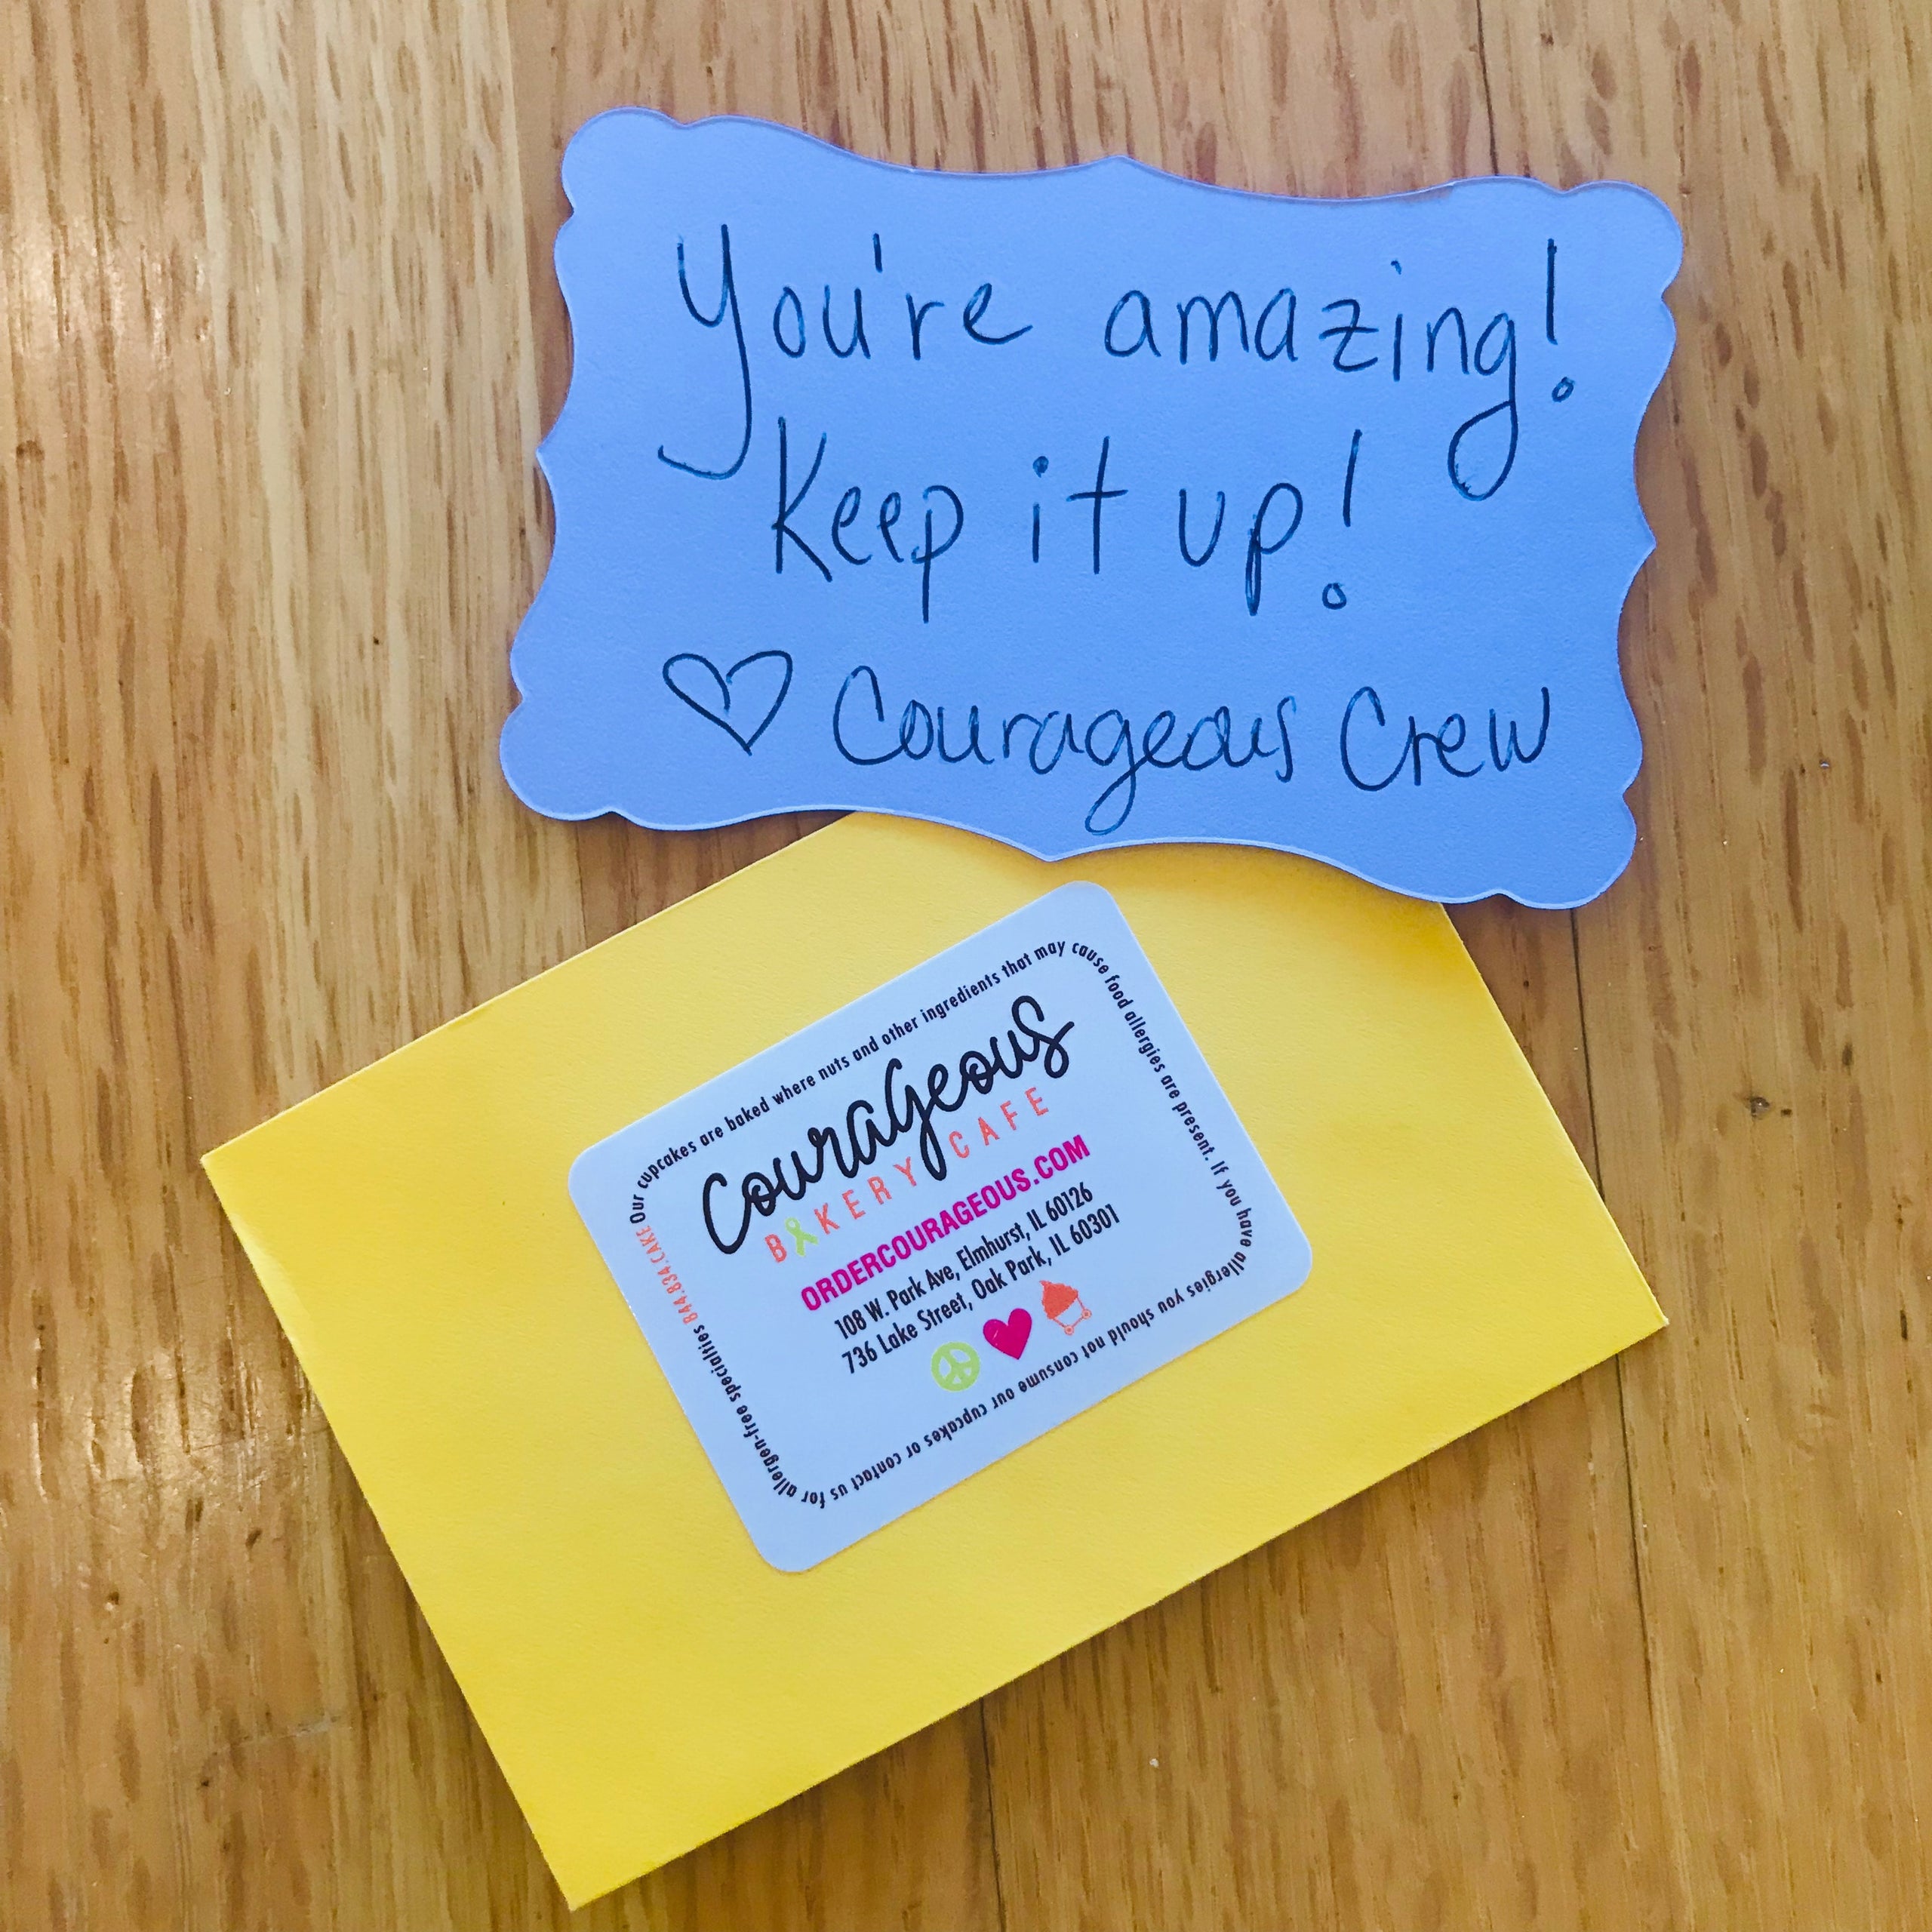 You're amazing!
Keep it up!
♡ Courageous Crew
Courageous
BAKERY CAFE
ORDERCOURAGEOUS.COM
108 W. Park Ave, Elmhurst, IL 60126
736 Lake Street, Oak Park, IL 60301
Our cupcakes are baked where nuts and other ingredients that may cause food allergies are present. If you have allergies you should not consume our cupcakes or contact us for allergen-free specialties 844.834.CAKE